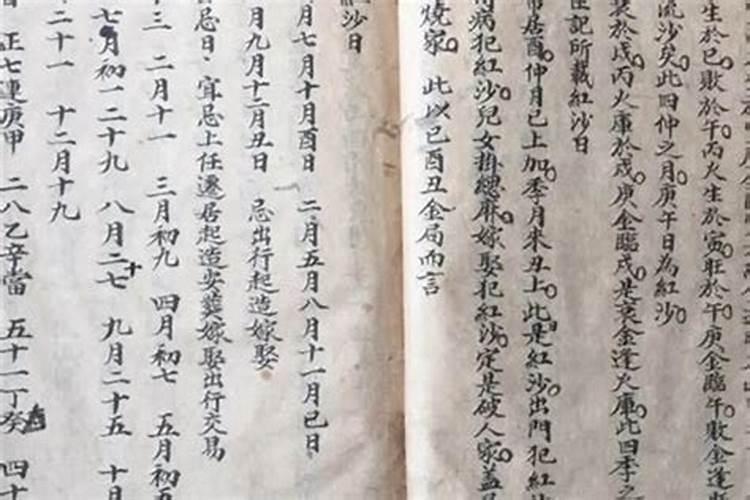 生於巳敗於午丙火生於寅旺於午庚金臨午敗金逢
流沙矣此四仲之月庚午日為紅沙
裝於戌丙火庫於戌庚金臨戌是衰金逢火庫此四季之
記所載紅沙日
居酉仲月巳上加季月來丑上此是紅沙出門犯紅
病犯紅沙兒女掛總麻嫁娶犯紅沙定是破人家蓋
燒家 此以巳酉丑金局而言
紅沙日
月七月十月酉日 二月五月八月十一月巳日
月九月十二月丑日 忌出行起造嫁娶
忌日 宜忌上任遷居起造安葬嫁娶出行交易
十三 二月十一 三月初九 四月初七 五月初五
七月初一二十九 八月二十七 九月二十五 十月
二十一 十二月十九
正七連庚甲 二八乙辛當 五十一丁癸 四十